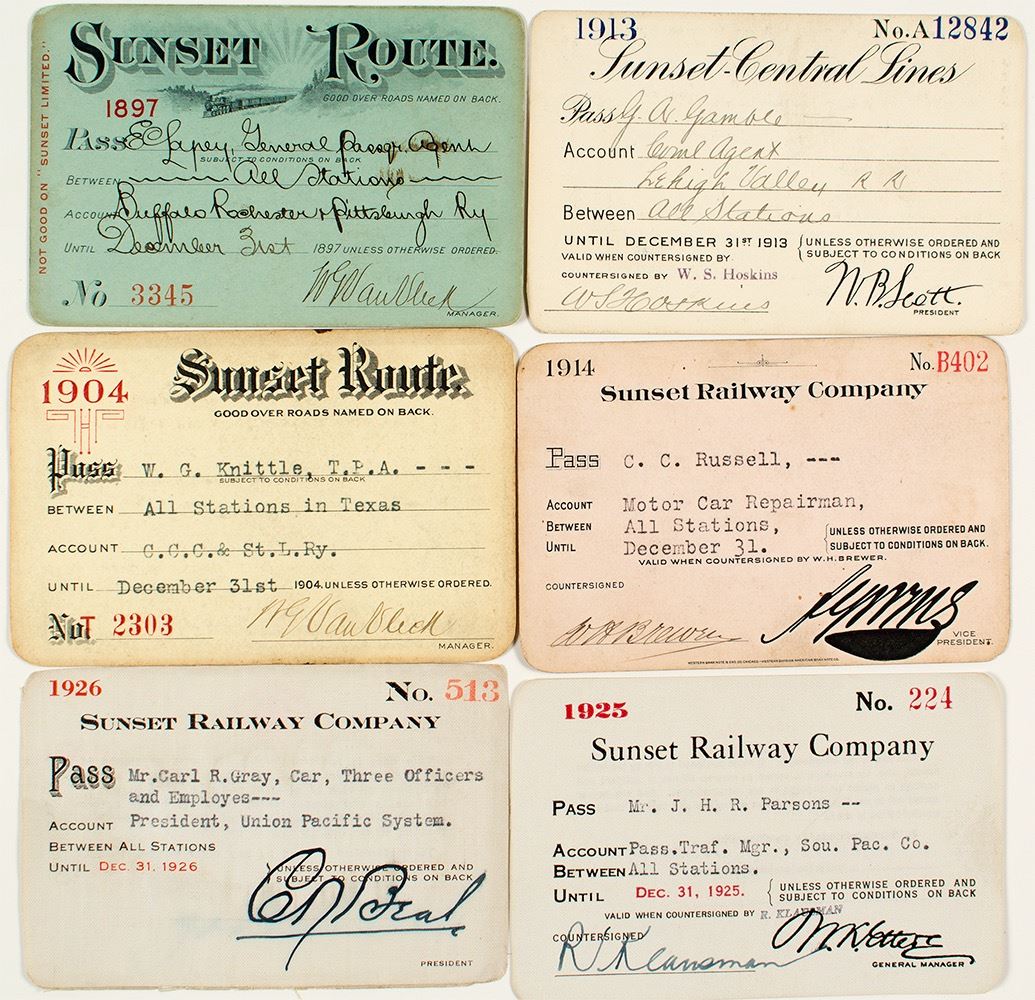 SUNSET ROUTE.
1897
GOOD OVER ROADS NAMED ON BACK.
NOT GOOD ON "SUNSET LIMITED."
PASS E C Lapey, General Passgr. Agent
SUBJECT TO CONDITIONS ON BACK
BETWEEN All Stations
ACCOUNT Buffalo Rochester & Pittsburgh Ry
UNTIL December 31st 1897 UNLESS OTHERWISE ORDERED.
No 3345
W G Van Vleck
MANAGER.
1913 No. A12842
Sunset-Central Lines
Pass G. A. Gamble
Account Coml Agent
Lehigh Valley R R
Between All Stations
UNTIL DECEMBER 31ST 1913 { UNLESS OTHERWISE ORDERED AND
VALID WHEN COUNTERSIGNED BY SUBJECT TO CONDITIONS ON BACK
COUNTERSIGNED BY W. S. Hoskins
W S Hoskins
N. B. Scott.
PRESIDENT
1904
Sunset Route.
GOOD OVER ROADS NAMED ON BACK.
Pass W. G. Knittle, T.P.A. - - -
SUBJECT TO CONDITIONS ON BACK
BETWEEN All Stations in Texas
ACCOUNT C.C.C.& St.L.Ry.
UNTIL December 31st 1904. UNLESS OTHERWISE ORDERED.
No T 2303
W G Van Vleck
MANAGER.
1914 No. B402
Sunset Railway Company
Pass C. C. Russell, ---
ACCOUNT Motor Car Repairman,
BETWEEN All Stations, { UNLESS OTHERWISE ORDERED AND
UNTIL December 31. SUBJECT TO CONDITIONS ON BACK.
VALID WHEN COUNTERSIGNED BY W.H. BREWER.
COUNTERSIGNED
W H Brewer
VICE
PRESIDENT.
1926 No. 513
SUNSET RAILWAY COMPANY
Pass Mr.Carl R.Gray, Car, Three Officers
and Employes---
ACCOUNT President, Union Pacific System.
BETWEEN ALL STATIONS
UNTIL DEC. 31, 1926 { UNLESS OTHERWISE ORDERED AND
SUBJECT TO CONDITIONS ON BACK
PRESIDENT
1925 No. 224
Sunset Railway Company
PASS Mr. J. H. R. Parsons --
ACCOUNT Pass.Traf. Mgr., Sou. Pac. Co.
BETWEEN All Stations.
UNTIL DEC. 31, 1925. { UNLESS OTHERWISE ORDERED AND
SUBJECT TO CONDITIONS ON BACK
VALID WHEN COUNTERSIGNED BY R. KLAUSMAN
COUNTERSIGNED
R. Klausman
GENERAL MANAGER